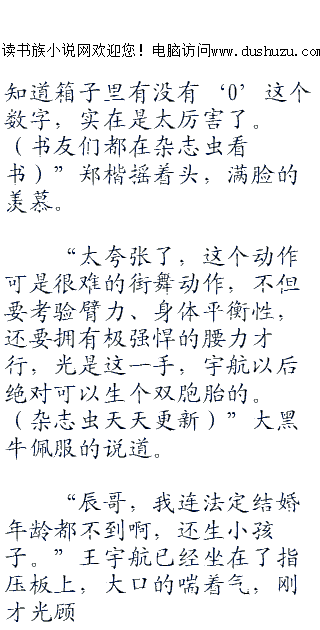 读书族小说网欢迎您！电脑访问www.dushuzu.com
知道箱子里有没有‘0’这个
数字，实在是太厉害了。
（书友们都在杂志虫看
书）”郑楷摇着头，满脸的
羡慕。
“太夸张了，这个动作
可是很难的街舞动作，不但
要考验臂力、身体平衡性，
还要拥有极强悍的腰力才
行，光是这一手，宇航以后
绝对可以生个双胞胎的。
（杂志虫天天更新）”大黑
牛佩服的说道。
“辰哥，我连法定结婚
年龄都不到啊，还生小孩
子。”王宇航已经坐在了指
压板上，大口的喘着气，刚
才光顾